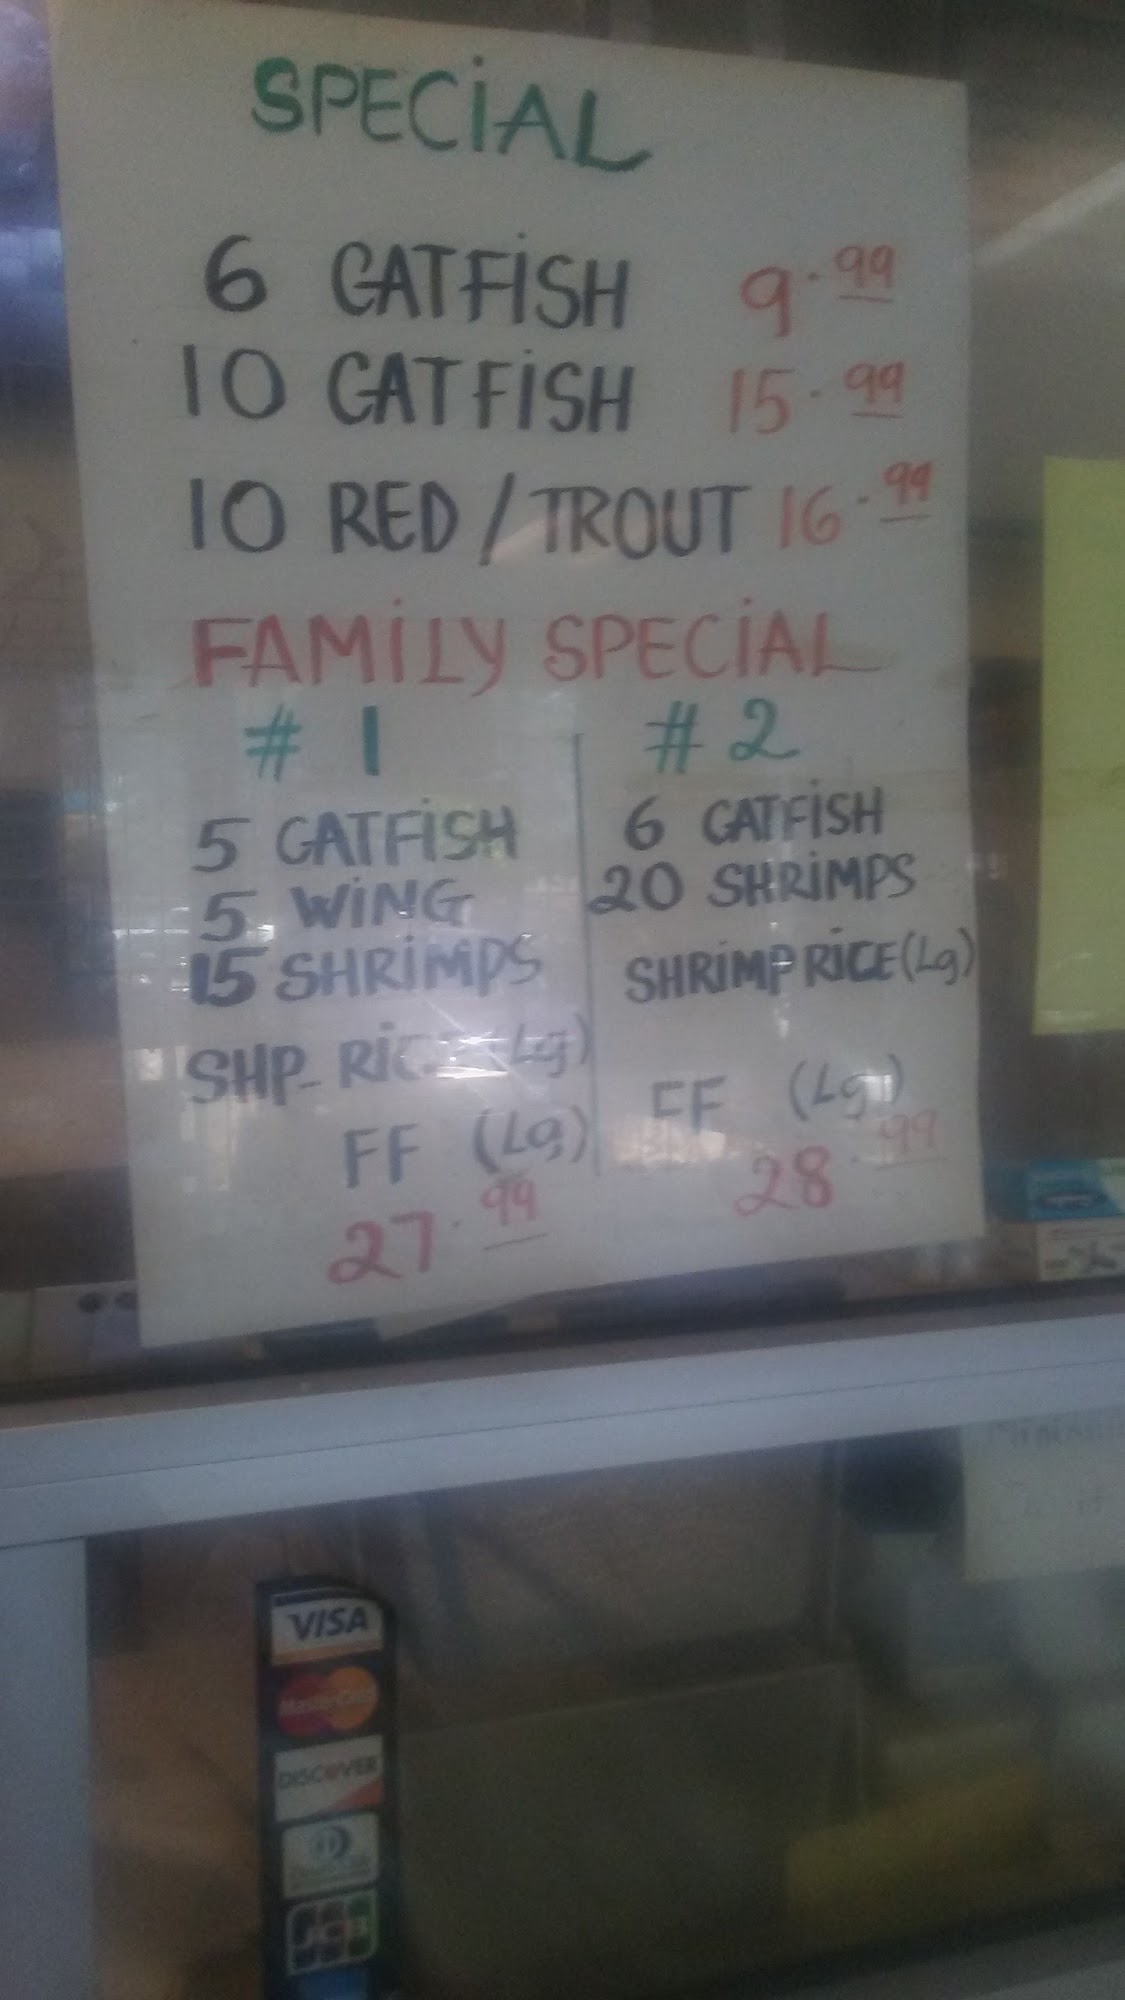 SPECIAL
6 CATFISH 9.99
10 CATFISH 15.99
10 RED / TROUT 16.99
FAMILY SPECIAL
# 1
5 CATFISH
5 WING
15 SHRIMPS
SHP- RICE (Lg)
FF (Lg)
27.99
# 2
6 CATFISH
20 SHRIMPS
SHRIMP RICE (Lg)
FF (Lg)
28.99
VISA
MasterCard
DISCOVER
JCB